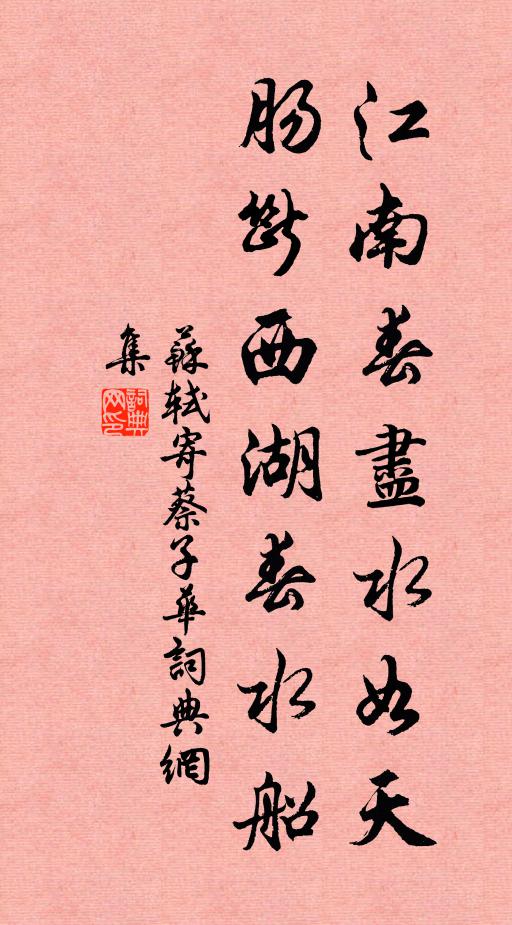 江南春盡水如天
腸斷西湖春水船
蘇軾寄蔡子華詞典網
集
詞典
网印